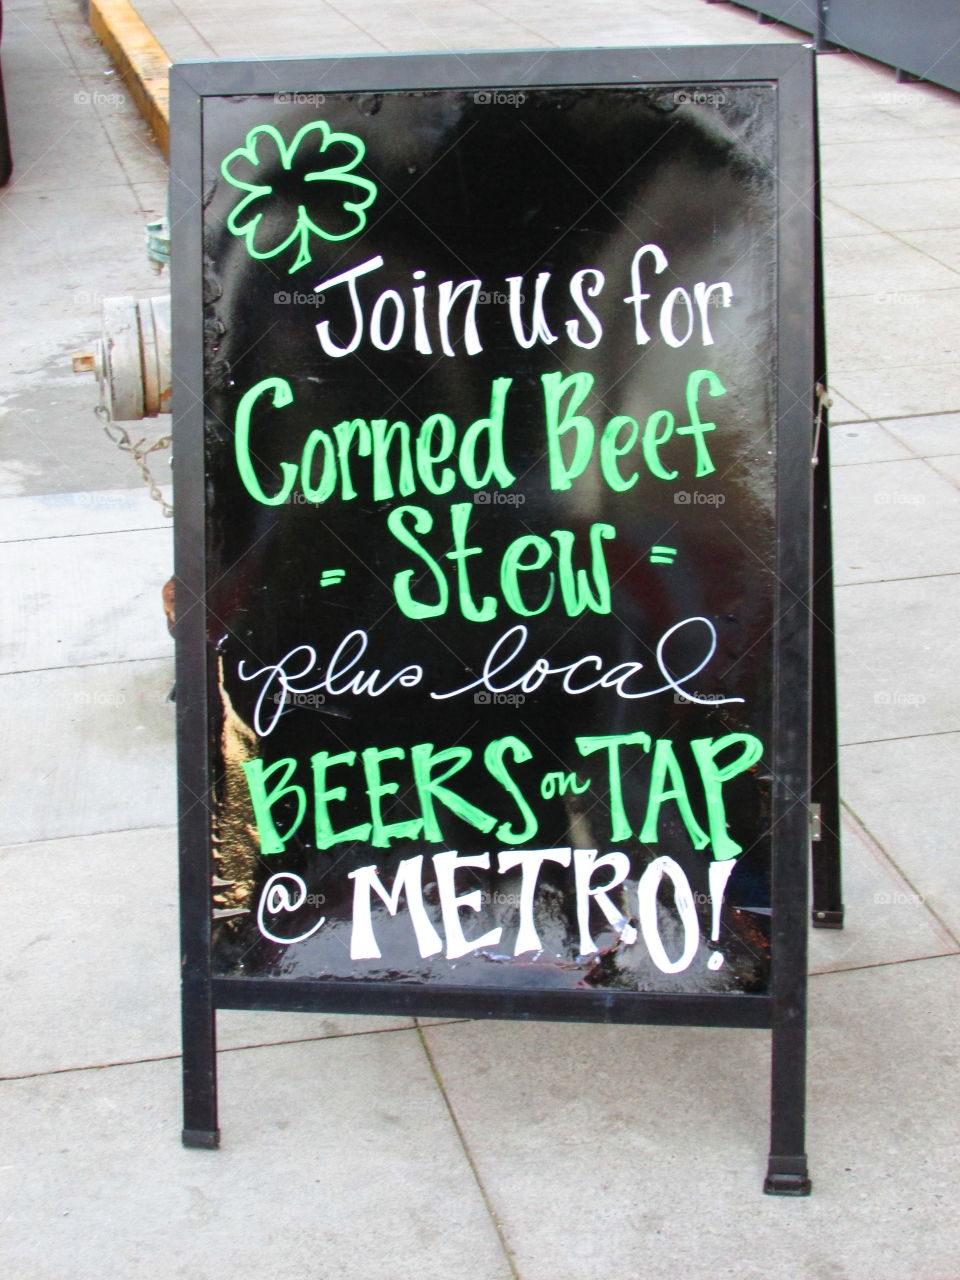 Join us for
Corned Beef
= Stew =
plus local
BEERS on TAP
@ METRO!
foap